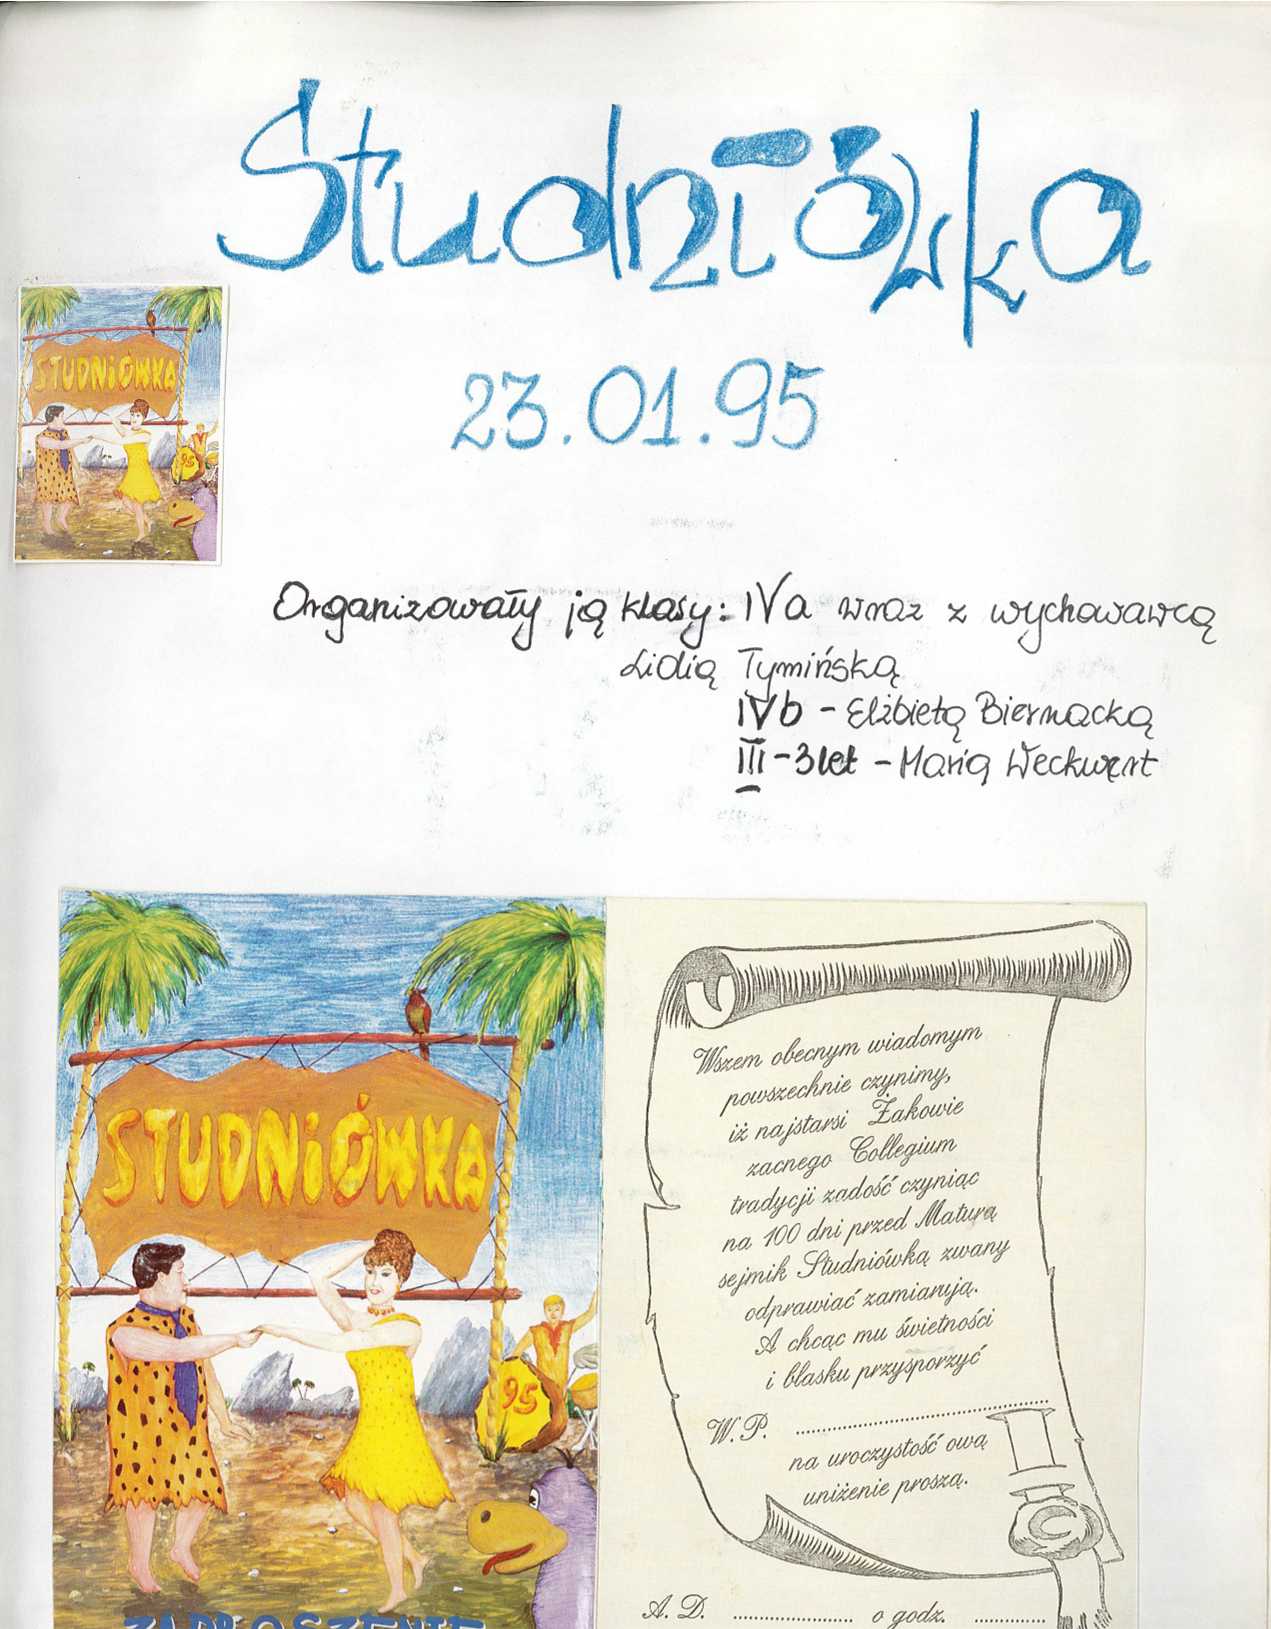 Studniówka
STUDNIÓWKA
95
23.01.95
Organizowały ją klasy: IVa wraz z wychowawcą
Lidią Tymińską
IVb - Elżbietą Biernacką
III - 3 let - Marią Weckwert
STUDNIÓWKA
95
ZAPROSZENIE
Wszem obecnym wiadomym
powszechnie czynimy,
iż najstarsi Żakowie
zacnego Collegium
tradycji zadość czyniąc
na 100 dni przed Maturą
sejmik Studniówką zwany
odprawiać zamiarują.
A chcąc mu świetności
i blasku przysporzyć
W. P. ................................
na uroczystość ową
uniżenie proszą.
A. D. .................... o godz. ............